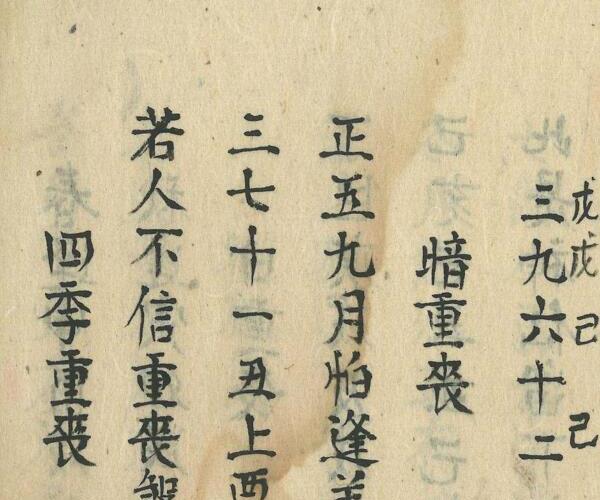 戊戊己己
三九六十二
暗重喪
正五九月怕逢
三七十一丑上酉
若人不信重喪
四季重喪